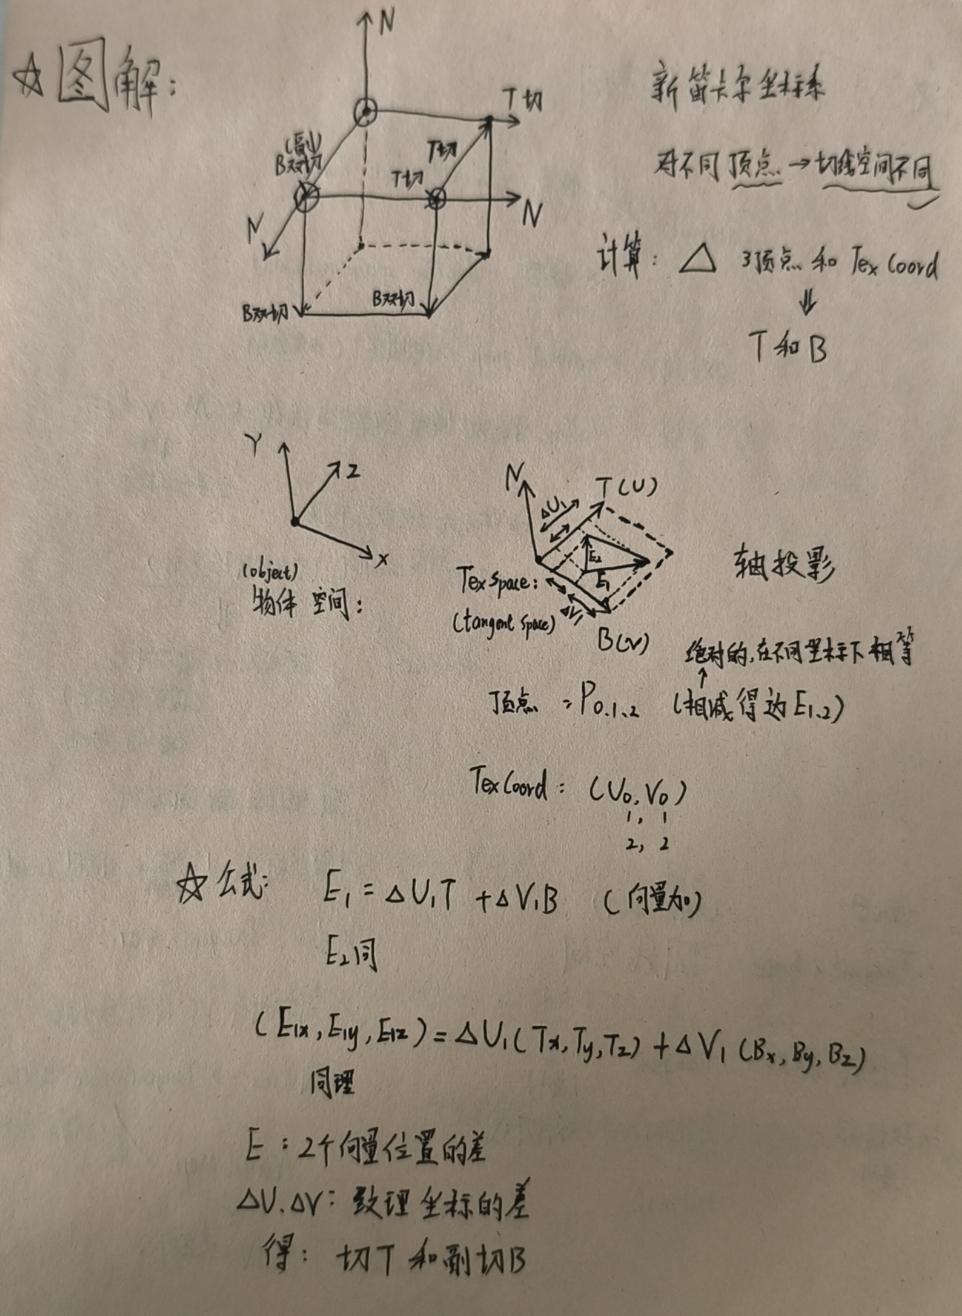 ☆图解:
N
T切
(副)
B双切
T切
T切
N
N
B双切
B双切
新笛卡尔坐标系
对不同顶点→切线空间不同
计算: △ 3顶点和 TexCoord
⇓
T和B
Y
Z
X
(object)
物体空间:
N
T(U)
ΔU₁
E₂
E₁
Tex space:
(tangent space)
ΔV₁
B(V)
轴投影
绝对的,在不同坐标下相等
↑
顶点 = P₀.₁.₂ (相减得边E₁.₂)
TexCoord: (U₀,V₀)
1, 1
2, 2
☆公式: E₁ = ΔU₁T + ΔV₁B (向量加)
E₂同
(E₁x,E₁y,E₁z) = ΔU₁(Tx,Ty,Tz) + ΔV₁(Bx,By,Bz)
同理
E:2个向量位置的差
ΔU.ΔV: 致理坐标的差
得: 切T和副切B